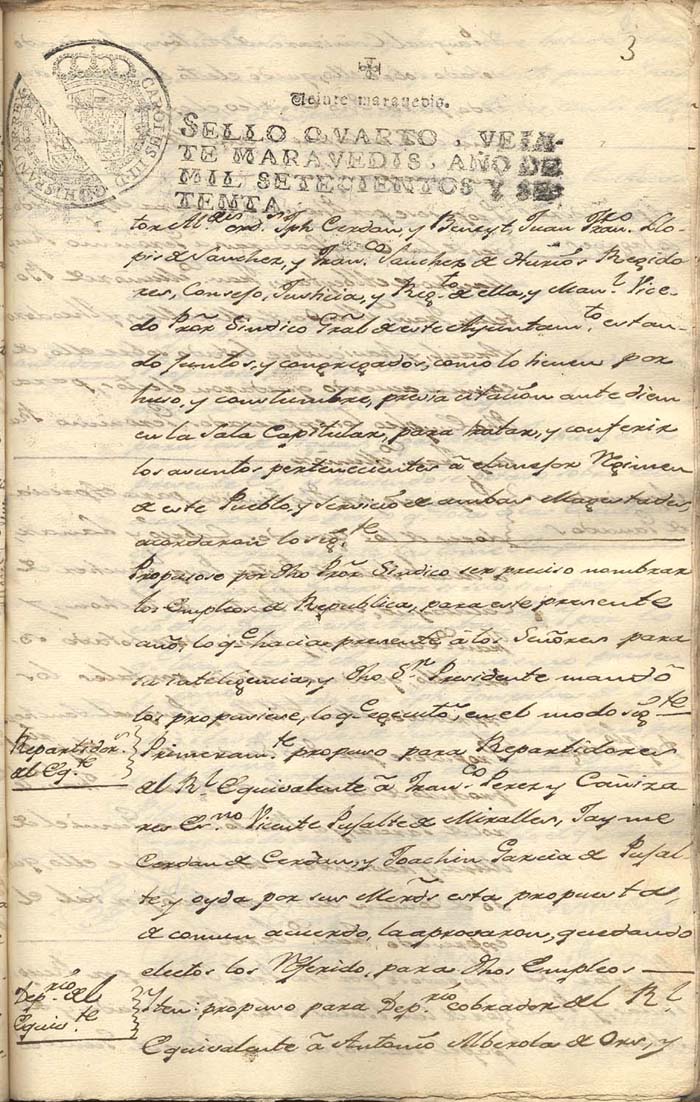 3
CAROLUS III D G HISPANIAR REX
Veinte maravedis.
SELLO QVARTO, VEIN-
TE MARAVEDIS, AÑO DE
MIL SETECIENTOS Y SE-
TENTA
tor M.es ord.s Jph Cerdan, y Beneyt, Juan Fran.co Llo-
pis de Sanchez, y Fran.co Sanchez de Regido
res, Consejo, Justicia, y Reg.to de ella, y Man.l Vice-
do Pror Sindico Gral de este Ayuntam.to estan-
do juntos, y congregados, como lo tienen por
huso, y constumbre, previa citacion ante diem
en la Sala Capitular, para tratar, y conferir
los asuntos pertenecientes â el mejor Regimen
de este Pueblo, y servicio de ambas Magestades
acordaron lo sig.te
Propusose por dho Pror Sindico ser preciso nombrar
los Empleos de Republica, para este presente
año, lo q.e hacia presente â los Señores para
su inteligencia, y dho S.or Presidente mandô
los propusiese, lo q.e egecutô, en el modo sig.te
Repartidor.s
del Eq.te
Primeram.te propuso para Repartidores
del R.l Equivalente â Fran.co Perez y Cañiza
res Es.no Vicente Pujalte de Miralles, Jayme
Cerdan de Cerdan, y Joachin Garcia de Pujal
te, y oyda por sus Merds esta propuesta,
de comun acuerdo, la aprovaron, quedando
electos los Referido, para dhos Empleos
Dep.rio del
Equiv.te
Iten: propuso para Dep.rio cobrador del R.l
Equivalente â Antonio Alberola de Ors, y